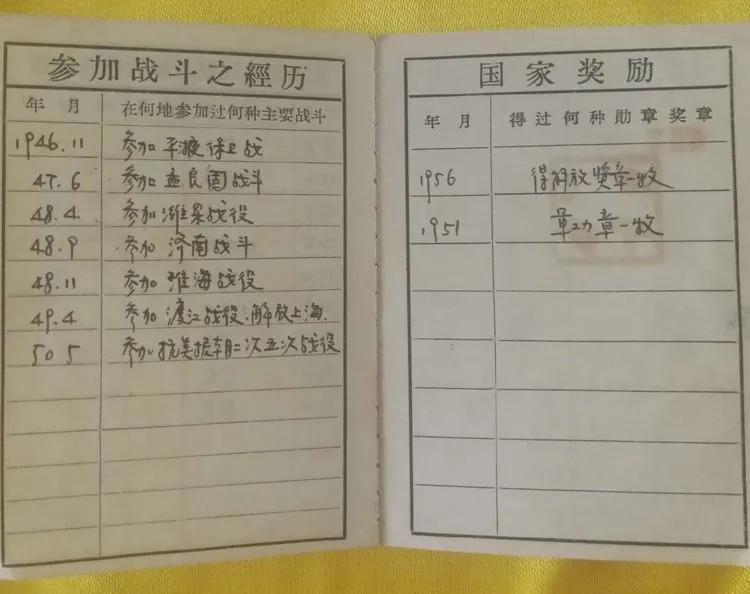 参加战斗之經历
年 月 在何地参加过何种主要战斗
1946.11 参加平掖保卫战
47.6 参加孟良固战斗
48.4 参加潍县战役
48.9 参加济南战斗
48.11 参加淮海战役
49.4 参加渡江战役.解放上海.
50 5 参加抗美援朝二次五次战役
国家奖励
年 月 得过何种勛章奖章
1956 得解放奖章一枚
1951 军功章一枚